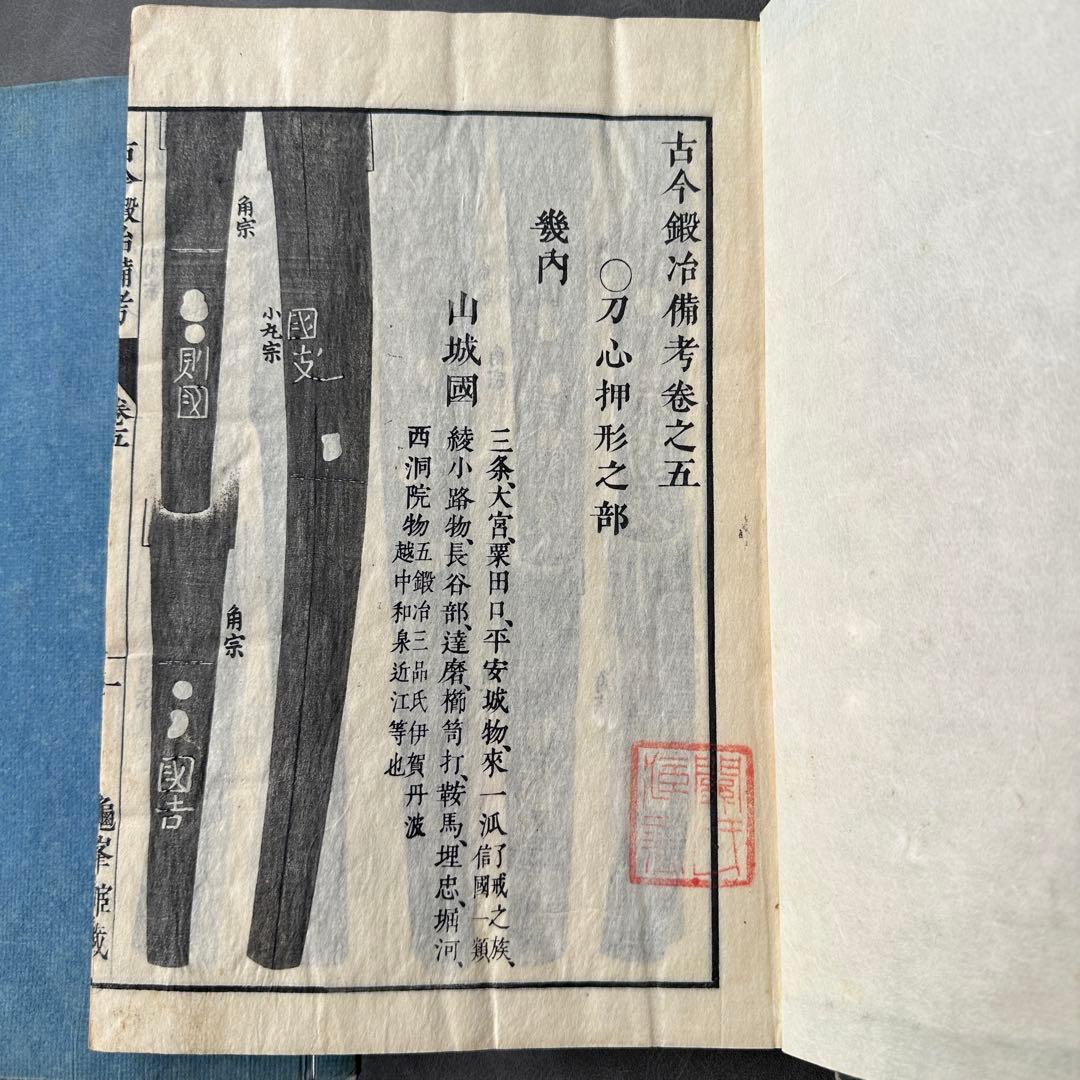 古今鍛冶備考卷之五
○刀心押形之部
畿内
山城國
三条、大宮、粟田口、平安城物、來一派了戒之族、信國一類
綾小路物、長谷部、達磨、櫛笥打、鞍馬、埋忠、堀河、
西洞院物五鍛冶三品氏伊賀丹波越中和泉近江等也
國友
小丸宗
角宗
則国
角宗
國吉
古今鍛冶備考
卷五
一